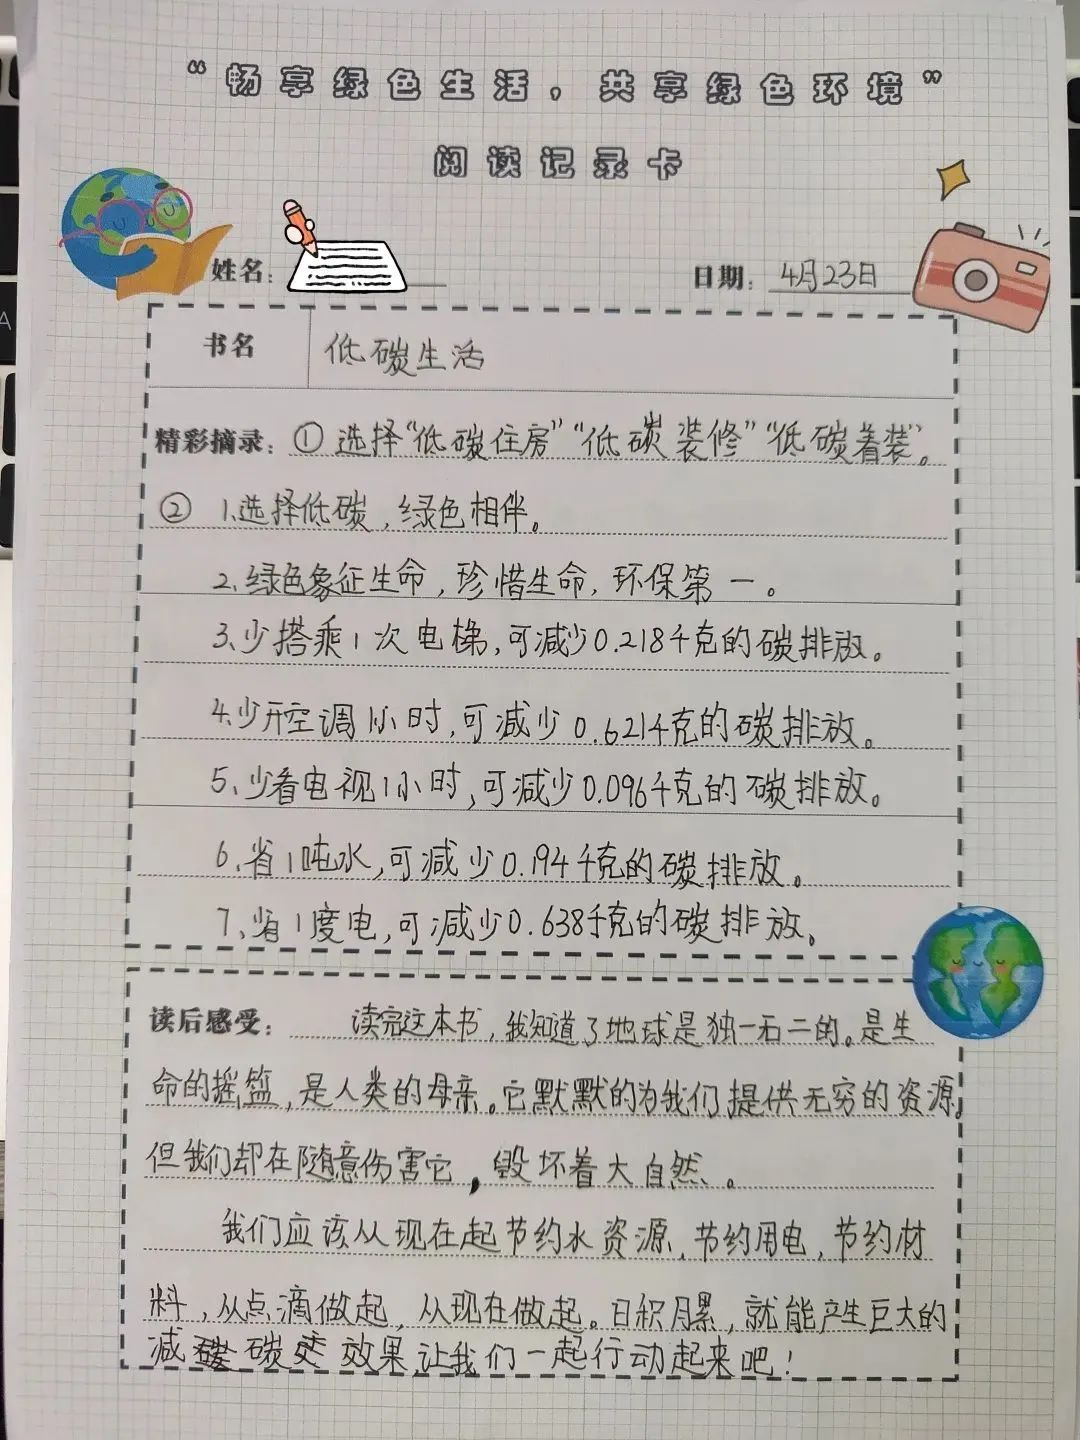 “畅享绿色生活，共享绿色环境”
阅读记录卡
姓名：
日期：4月23日
书名 低碳生活
精彩摘录：① 选择“低碳住房”“低碳装修”“低碳着装”。
② 1.选择低碳，绿色相伴。
2.绿色象征生命，珍惜生命，环保第一。
3、少搭乘1次电梯，可减少0.218千克的碳排放。
4.少开空调1小时，可减少0.621千克的碳排放。
5、少看电视1小时，可减少0.096千克的碳排放。
6.省1吨水，可减少0.194千克的碳排放。
7、省1度电，可减少0.638千克的碳排放。
读后感受：读完这本书，我知道了地球是独一无二的。是生
命的摇篮，是人类的母亲。它默默的为我们提供无穷的资源，
但我们却在随意伤害它，毁坏着大自然。
我们应该从现在起节约水资源，节约用电，节约材
料，从点滴做起，从现在做起。日积月累，就能产生巨大的
减碳效果，让我们一起行动起来吧！
A